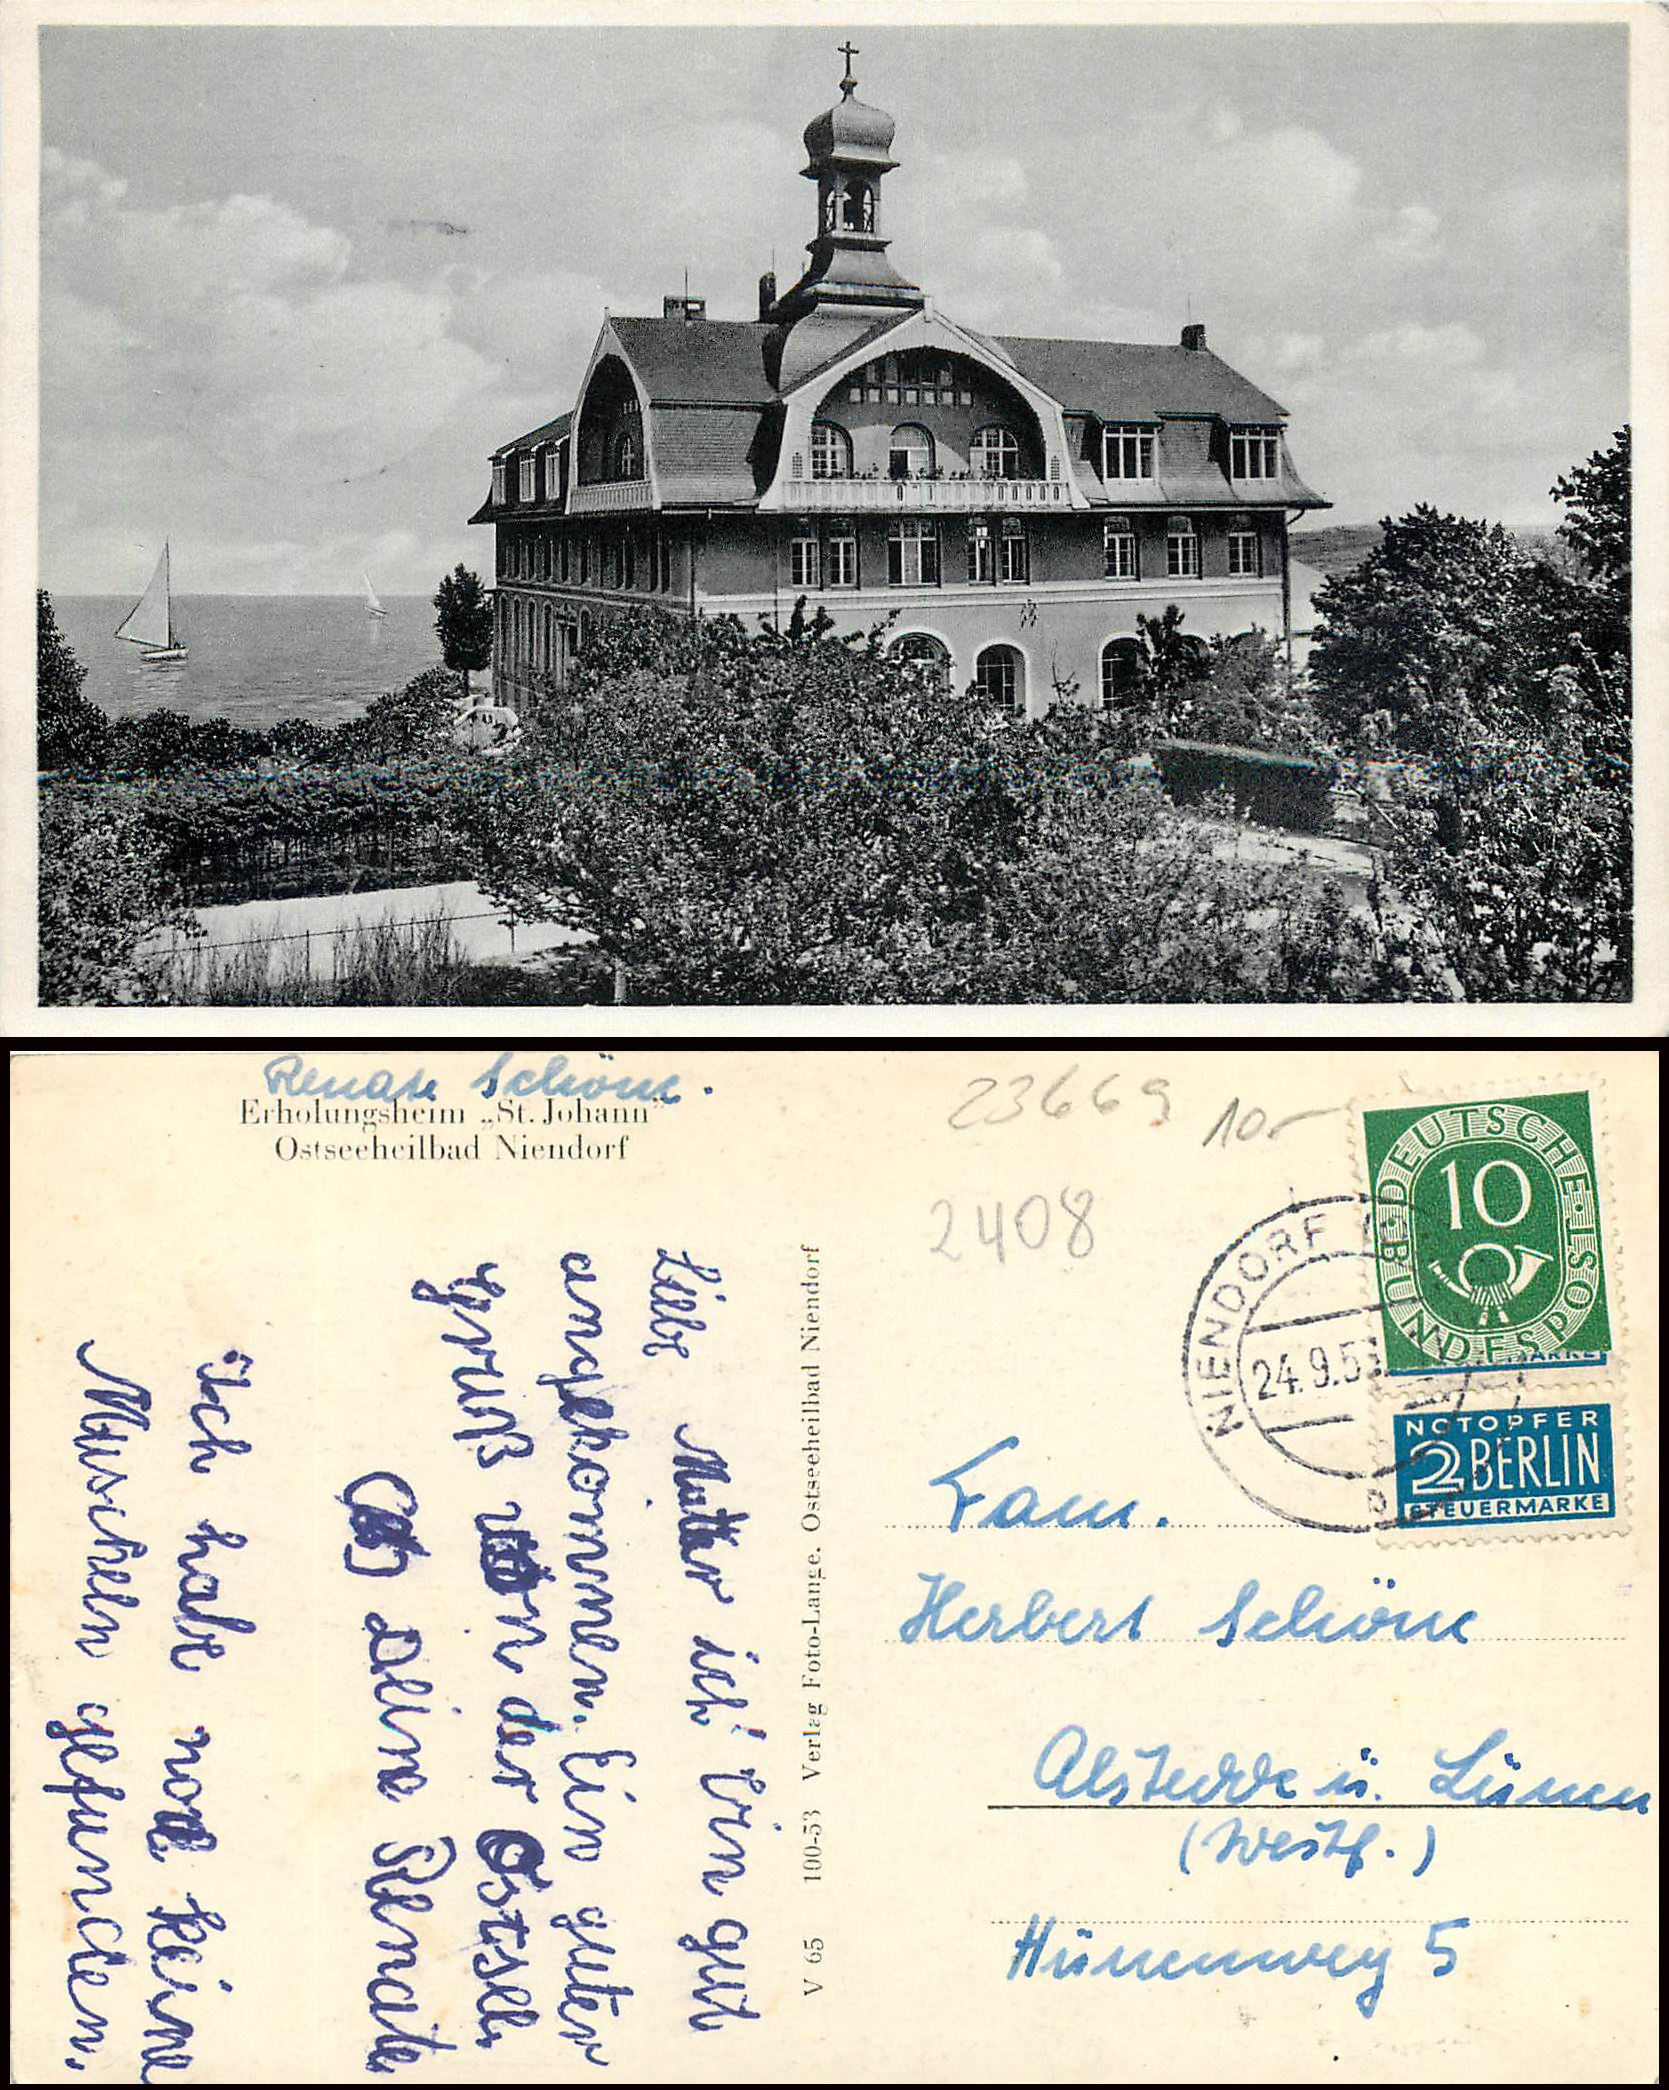 Renate Schöne.
Erholungsheim „St. Johann"
Ostseeheilbad Niendorf
23669
10.-
2408
DEUTSCHE BUNDESPOST
10
NIENDORF
24.9.53
NOTOPFER
2 BERLIN
STEUERMARKE
Fam.
Herbert Schöne
Alstedde ü. Lünen
(Westf.)
Hünenweg 5
V 65 100-53 Verlag Foto-Lange, Ostseeheilbad Niendorf
Liebe Mutter ich bin gut
angekommen. Ein guter
Gruß von der Ostsee.
Deine Renate
Ich habe noch keine
Muscheln gefunden.